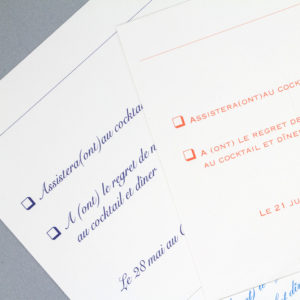 Assistera(ont)au cocktai
A (ont) le regret de n
au cocktail et dîner
Le 28 mai au
ASSISTERA(ONT)AU COCK
A (ONT) LE REGRET DE
AU COCKTAIL ET DÎNER
LE 21 JU